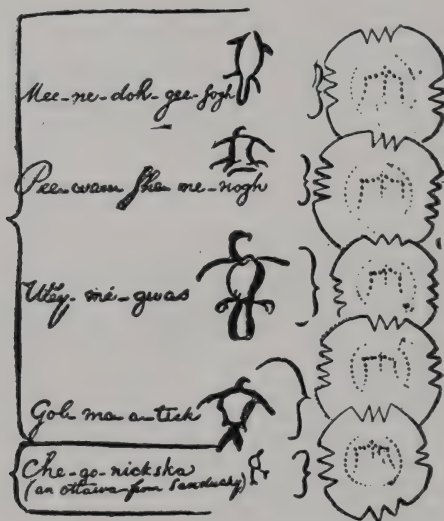 Mee-ne-doh-gee-sogh
Pee-wan-she-me-nogh
Wey-me-gwas
Gob-ma-a-tick
Che-go-nickska
(an Ottawa from Sandusky)